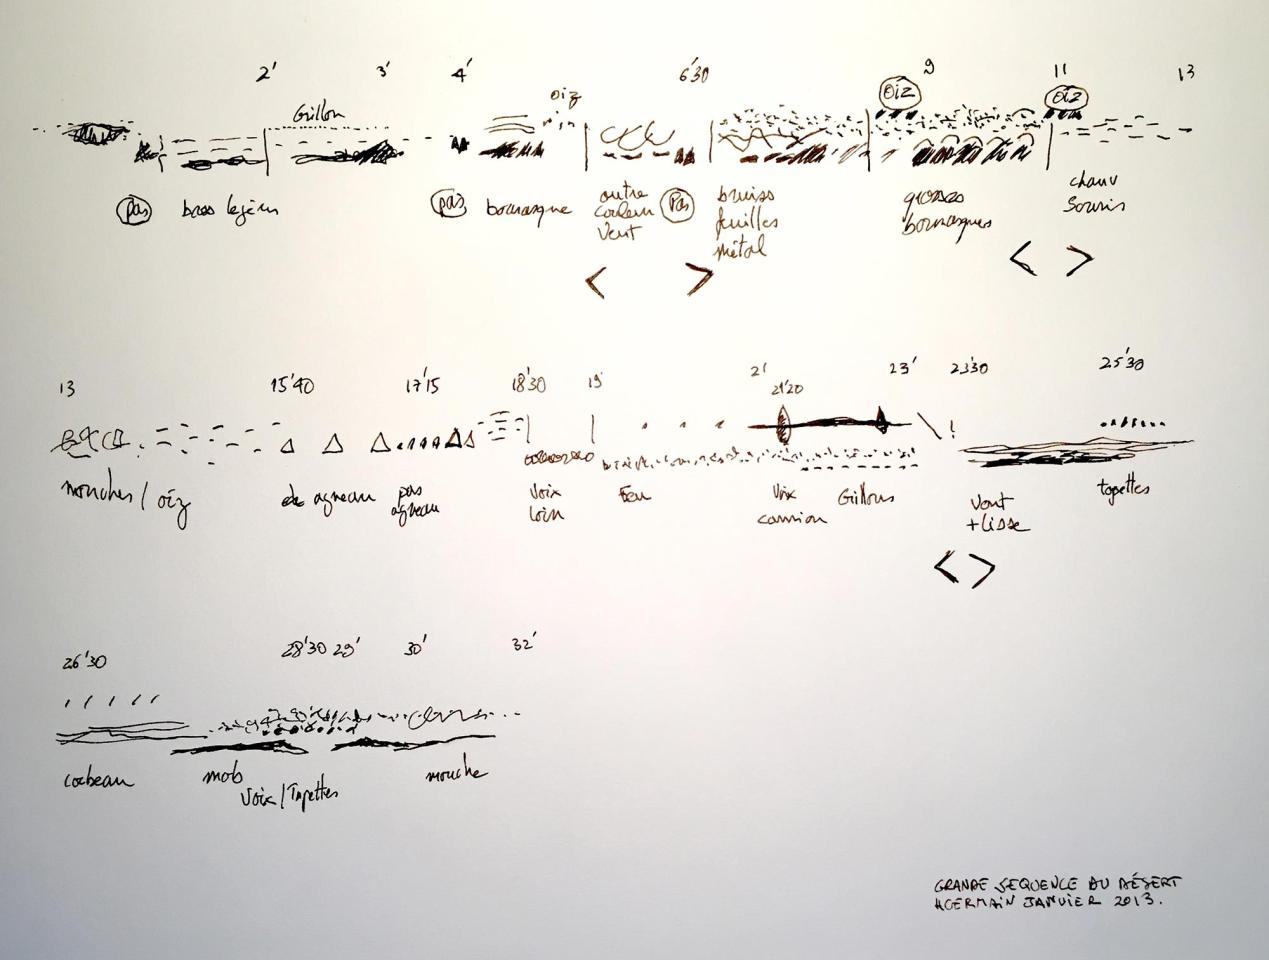 2' 3' 4' 6'30 9 11 13
Grillon oiz oiz oiz
pas bass légèm pas bourrasque outre pas bruiss grosses chauv
couleur feuilles bourrasques souris
vent métal
< > < >
13 15'40 17'15 18'30 19' 21' 23' 23'30 25'30
21'20
mouches / oiz agneau pas voix Feu voix Grillons vent tapettes
agneau loin camion + lisse
< >
26'30 28'30 29' 30' 32'
corbeau mob mouche
voix / Tapettes
GRANDE SEQUENCE DU DÉSERT
HGERMAIN JANVIER 2013.